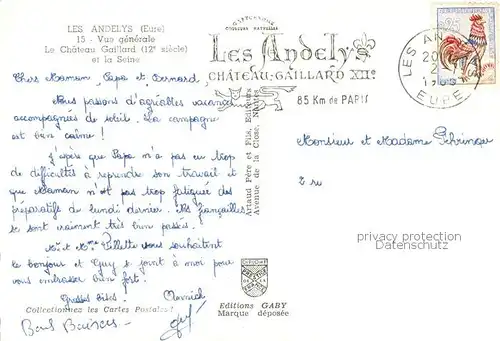 LES ANDELYS (Eure)
15 - Vue générale
Le Château Gaillard (12e siècle)
et la Seine
Chers Maman Papa et Bernard,
Nous passons d'agréables vacances
accompagnées de soleil. La campagne
est bien calme !
J'espère que Papa n'a pas eu trop
de difficultés à reprendre son travail et
que Maman n'est pas trop fatiguée des
préparatifs de lundi dernier. Nos fiançailles
se sont vraiment très bien passées.
Mr et Mme Pillette vous souhaitent
le bonjour et Guy se joint à moi pour
vous embrasser bien fort.
Grosses bises. Annick
Bons Baisers Guy
Collectionnez les Cartes Postales !
Artaud Père et Fils, Editeurs
Avenue de la Close, Nantes
COULEURS NATURELLES
Les Andelys
CHÂTEAU-GAILLARD XIIe
85 Km de PARIS
LES AN
EURE
0,25
Monsieur et Madame
2 rue
privacy protection
Datenschutz
Editions GABY
Marque déposée